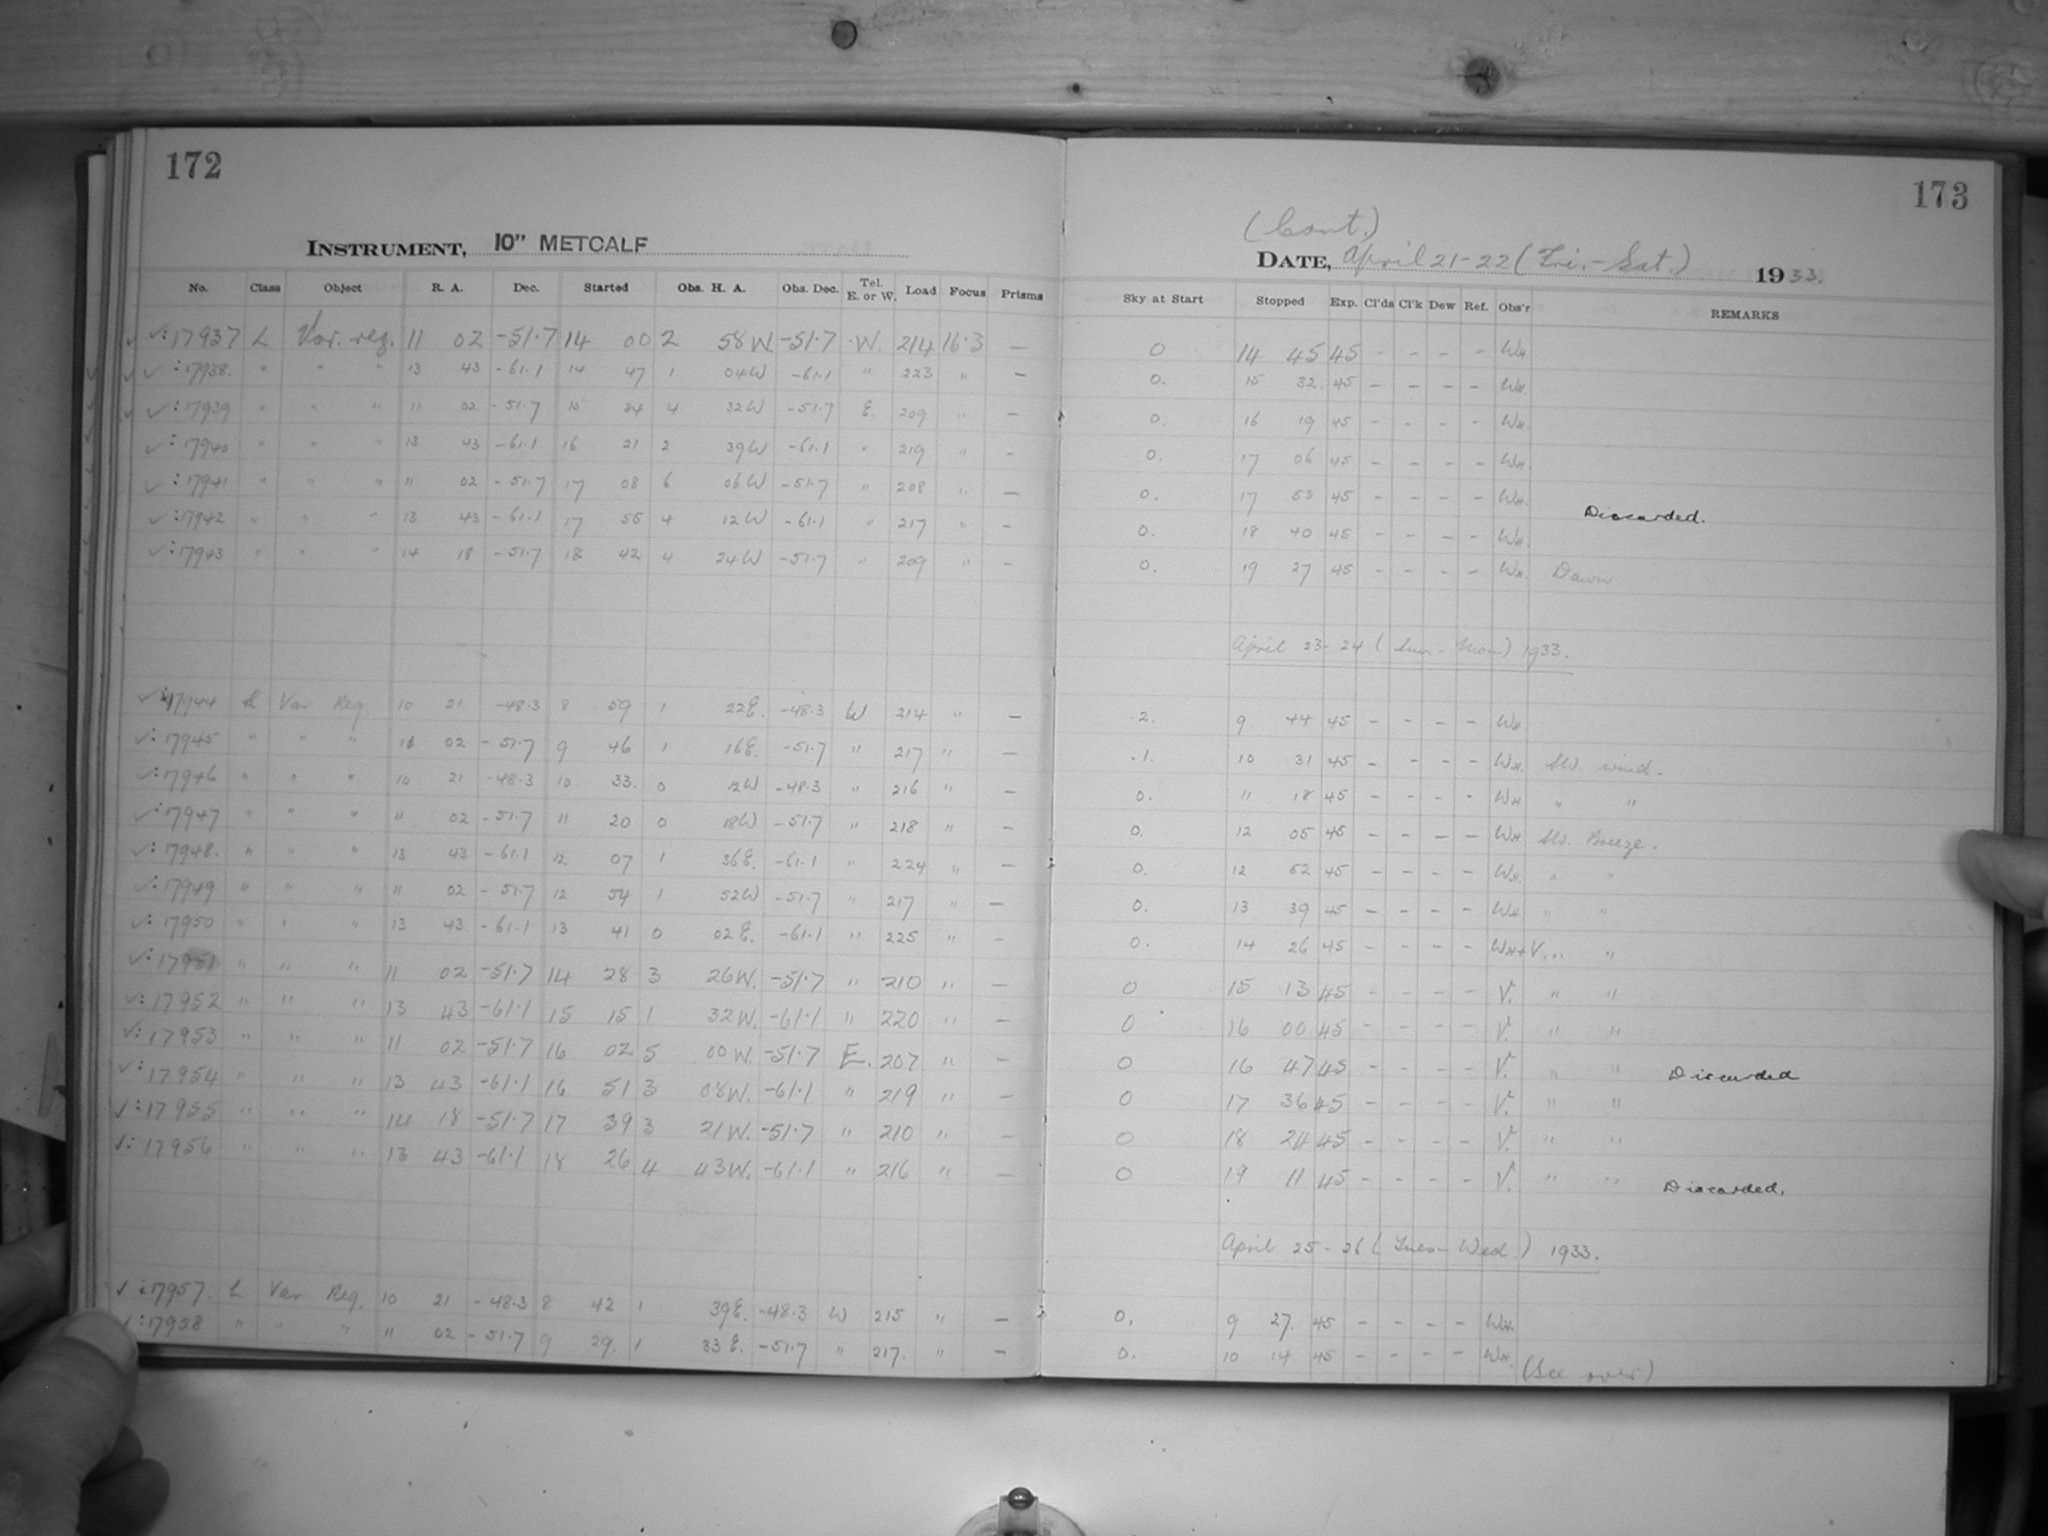 172
173
INSTRUMENT, 10" METCALF
(Cont.)
DATE, April 21-22 (Fri.-Sat.) 1933.
No. Class Object R. A. Dec. Started Obs. H. A. Obs. Dec. Tel. E. or W. Load Focus Prisms Sky at Start Stopped Exp. Cl'ds Cl'k Dew Ref. Obs'r REMARKS
17937 L Var. reg. 11 02 -51.7 14 00 2 58W. -51.7 W. 214 16.3 — 0 14 45 45 - - - - WH
17938. " " " 13 43 -61.1 14 47 1 04W -61.1 " 223 " — 0. 15 32. 45 - - - - WH.
17939 " " " 11 02 -51.7 15 34 4 32W -51.7 E. 209 " — 0. 16 19 45 - - - - WH.
17940 " " " 13 43 -61.1 16 21 2 39W -61.1 " 219 " - 0. 17 06 45 - - - - WH.
17941 " " " 11 02 -51.7 17 08 6 06W -51.7 " 208 " — 0. 17 53 45 - - - - WH. Discarded.
17942 " " " 13 43 -61.1 17 55 4 12W -61.1 " 217 " - 0. 18 40 45 - - - - WH.
17943 " " " 14 18 -51.7 18 42 4 24W -51.7 " 209 " - 0. 19 27 45 - - - - WH. Dawn
April 23-24 (Sun-Mon) 1933.
17944 L Var Reg 10 21 -48.3 8 59 1 22E. -48.3 W 214 " — 2. 9 44 45 - - - - WH
17945 " " " 11 02 -51.7 9 46 1 16E. -51.7 " 217 " — 1. 10 31 45 - - - - WH. SW. wind.
17946 " " " 10 21 -48.3 10 33. 0 12W -48.3 " 216 " — 0. 11 18 45 - - - - WH " "
17947 " " " 11 02 -51.7 11 20 0 18W -51.7 " 218 " — 0. 12 05 45 - - - - WH SW. Breeze.
17948. " " " 13 43 -61.1 12 07 1 36E. -61.1 " 224 " — 0. 12 52 45 - - - - WH. " "
17949 " " " 11 02 -51.7 12 54 1 52W -51.7 " 217 " — 0. 13 39 45 - - - - WH " "
17950 " " " 13 43 -61.1 13 41 0 02E. -61.1 " 225 " - 0. 14 26 45 - - - - WH+V. " "
17951 " " " 11 02 -51.7 14 28 3 26W. -51.7 " 210 " — 0 15 13 45 - - - - V. " "
17952 " " " 13 43 -61.1 15 15 1 32W. -61.1 " 220 " — 0 16 00 45 - - - - V. " "
17953 " " " 11 02 -51.7 16 02 5 00W. -51.7 E. 207 " — 0 16 47 45 - - - - V. " " Discarded
17954 " " " 13 43 -61.1 16 51 3 08W. -61.1 " 219 " — 0 17 36 45 - - - - V. " "
17955 " " " 14 18 -51.7 17 39 3 21W. -51.7 " 210 " — 0 18 24 45 - - - - V. " "
17956 " " " 13 43 -61.1 18 26 4 43W. -61.1 " 216 " — 0 19 11 45 - - - - V. " " Discarded.
April 25-26 (Tues-Wed.) 1933.
17957. L Var Reg. 10 21 -48.3 8 42 1 39E. -48.3 W 215 " — 0. 9 27. 45 - - - - WH.
17958 " " " 11 02 -51.7 9 29. 1 33E. -51.7 " 217. " — 0. 10 14 45 - - - - WH.
(See over)